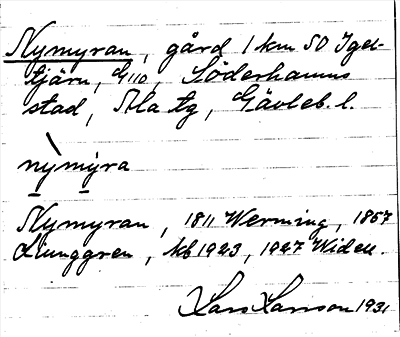 Nymyran, gård 1 km SO Igel-
tjärn, G110, Söderhamns
stad, Ala tg, Gävleb. l.
nỳmýra
Nymyran, 1811 Werming, 1857
Ljunggren, kb 1923, 1927 Widell.
Lars Larsson 1931